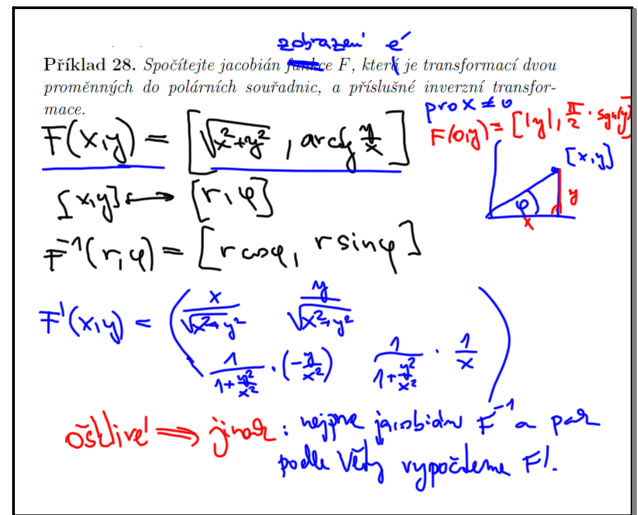 zobrazení é
Příklad 28. Spočítejte jacobián funkce F, který je transformací dvou
proměnných do polárních souřadnic, a příslušné inverzní transfor-
mace.
pro x ≠ 0
F(x,y) = [√x²+y², arctg y/x]
F(0,y) = [|y|, π/2 · sgn(y)]
[x,y]
[x,y] ⟷ [r,φ]
φ
y
x
F⁻¹(r,φ) = [r cosφ, r sinφ]
F'(x,y) = ( x/√x²+y² y/√x²+y²
1/1+y²/x² · (-y/x²) 1/1+y²/x² · 1/x )
ošklivé! ⟹ jinak: nejprve jacobián F⁻¹ a pak
podle Věty vypočteme F'.